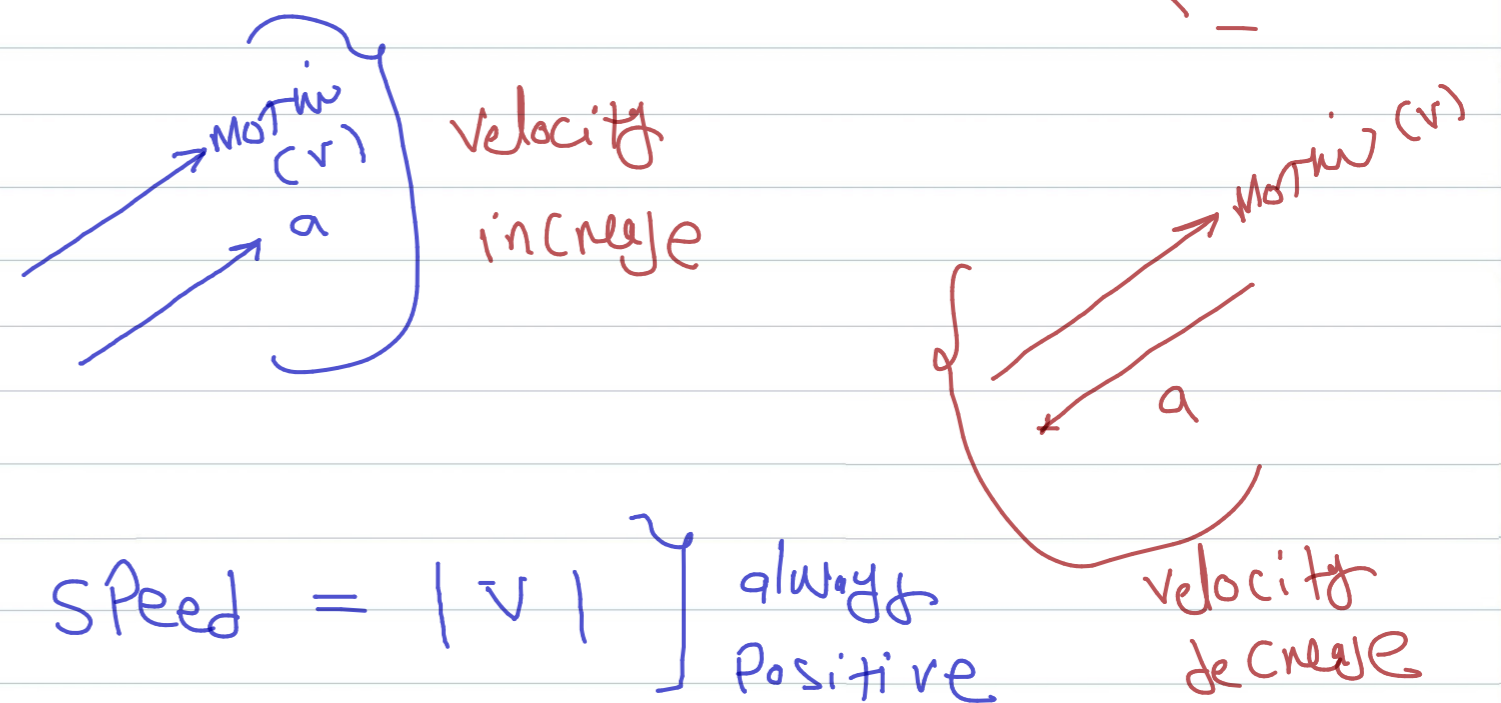 Motion
(v)
a
velocity
increase
Motion (v)
a
velocity
decrease
Speed = | v̄ |
always
Positive